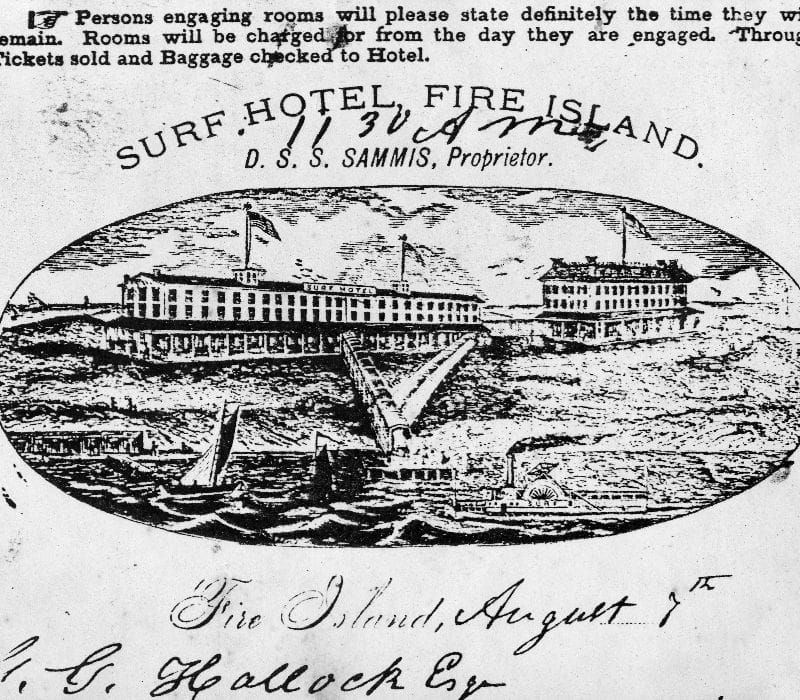 ☞ Persons engaging rooms will please state definitely the time they wi
emain. Rooms will be charged for from the day they are engaged. Throug
Tickets sold and Baggage checked to Hotel.
SURF HOTEL, FIRE ISLAND.
11 30 A m
D. S. S. SAMMIS, Proprietor.
SURF HOTEL
SURF
Fire Island, August 7th
G. Hallock Esq